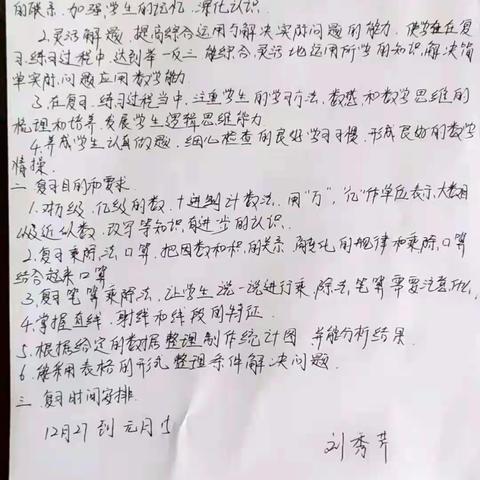 的联系,加强学生的记忆,深化认识.
2.灵活解题,提高综合运用与解决实际问题的能力,使学生在复
习练习过程中,达到举一反三,能综合,灵活地运用所学的知识,解决简
单实际问题,应用数学能力
3.在复习,练习过程当中,注重学生的学习方法,数感和数学思维的
梳理和培养,发展学生逻辑思维能力
4.养成学生认真做题,细心检查的良好学习习惯,形成良好的数学
情操.
二、复习目的和要求.
1.对万级,亿级的数,十进制计数法,用"万","亿"作单位表示大数目
以及近似数,改写等知识有进步的认识.
2.复习乘除法口算,把因数和积的关系,商变化的规律和乘除口算
结合起来口算
3.复习笔算乘除法,让学生说一说进行乘,除法,笔算需要注意什么.
4.掌握直线,射线和线段的特征.
5.根据给定的数据整理制作统计图,并能分析结果.
6.能采用表格的形式整理条件解决问题.
三、复习时间安排.
12月27到元月
刘秀芹